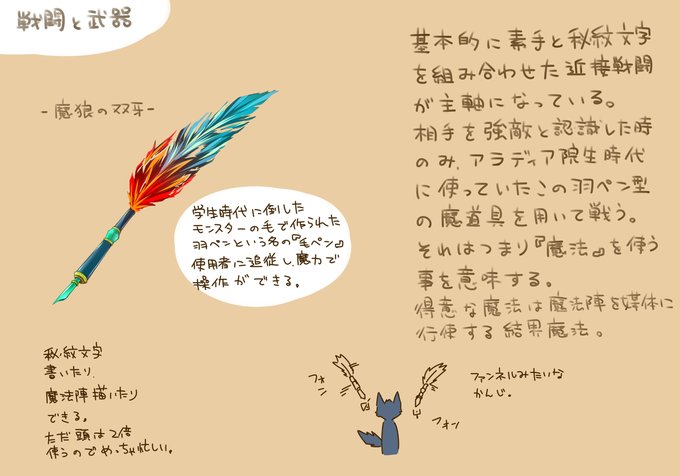 戦闘と武器
-魔狼の双牙-
学生時代に倒した
モンスターの毛で作られた
羽ペンという名の『毛ペン』
使用者に追従し、魔力で
操作ができる。
基本的に素手と秘紋文字
を組み合わせた近接戦闘
が主軸になっている。
相手を強敵と認識した時
のみ、アラディア院生時代
に使っていたこの羽ペン型
の魔道具を用いて戦う。
それはつまり『魔法』を使う
事を意味する。
得意な魔法は魔法陣を媒体に
行使する結果魔法。
秘紋文字
書いたり、
魔法陣描いたり
できる。
ただ頭は2倍
使うのでめっちゃ忙しい。
フォン
フォン
ファンネルみたいな
かんじ。